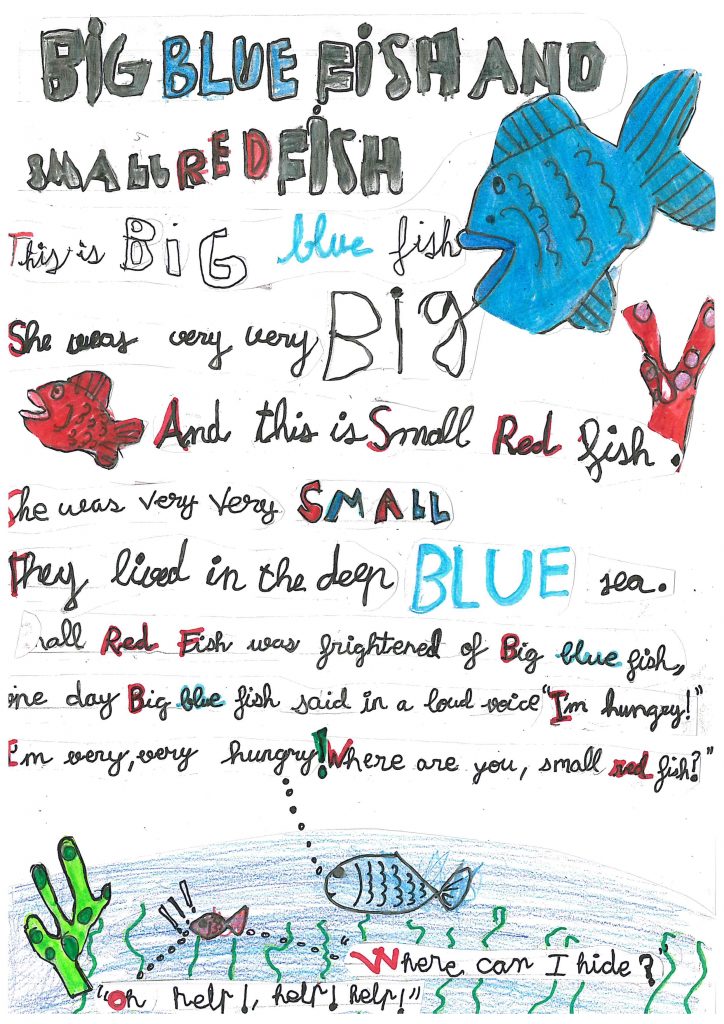 BIG BLUE FISH AND
SMALL RED FISH
This is BIG blue fish
She was very very Big
And this is Small Red fish.
She was very very SMALL
They lived in the deep BLUE sea.
all Red Fish was frightened of Big blue fish,
one day Big blue fish said in a loud voice "I'm hungry!"
I'm very, very hungry! Where are you, small red fish?"
!!!
"Where can I hide?"
"Oh help!, help! help!"